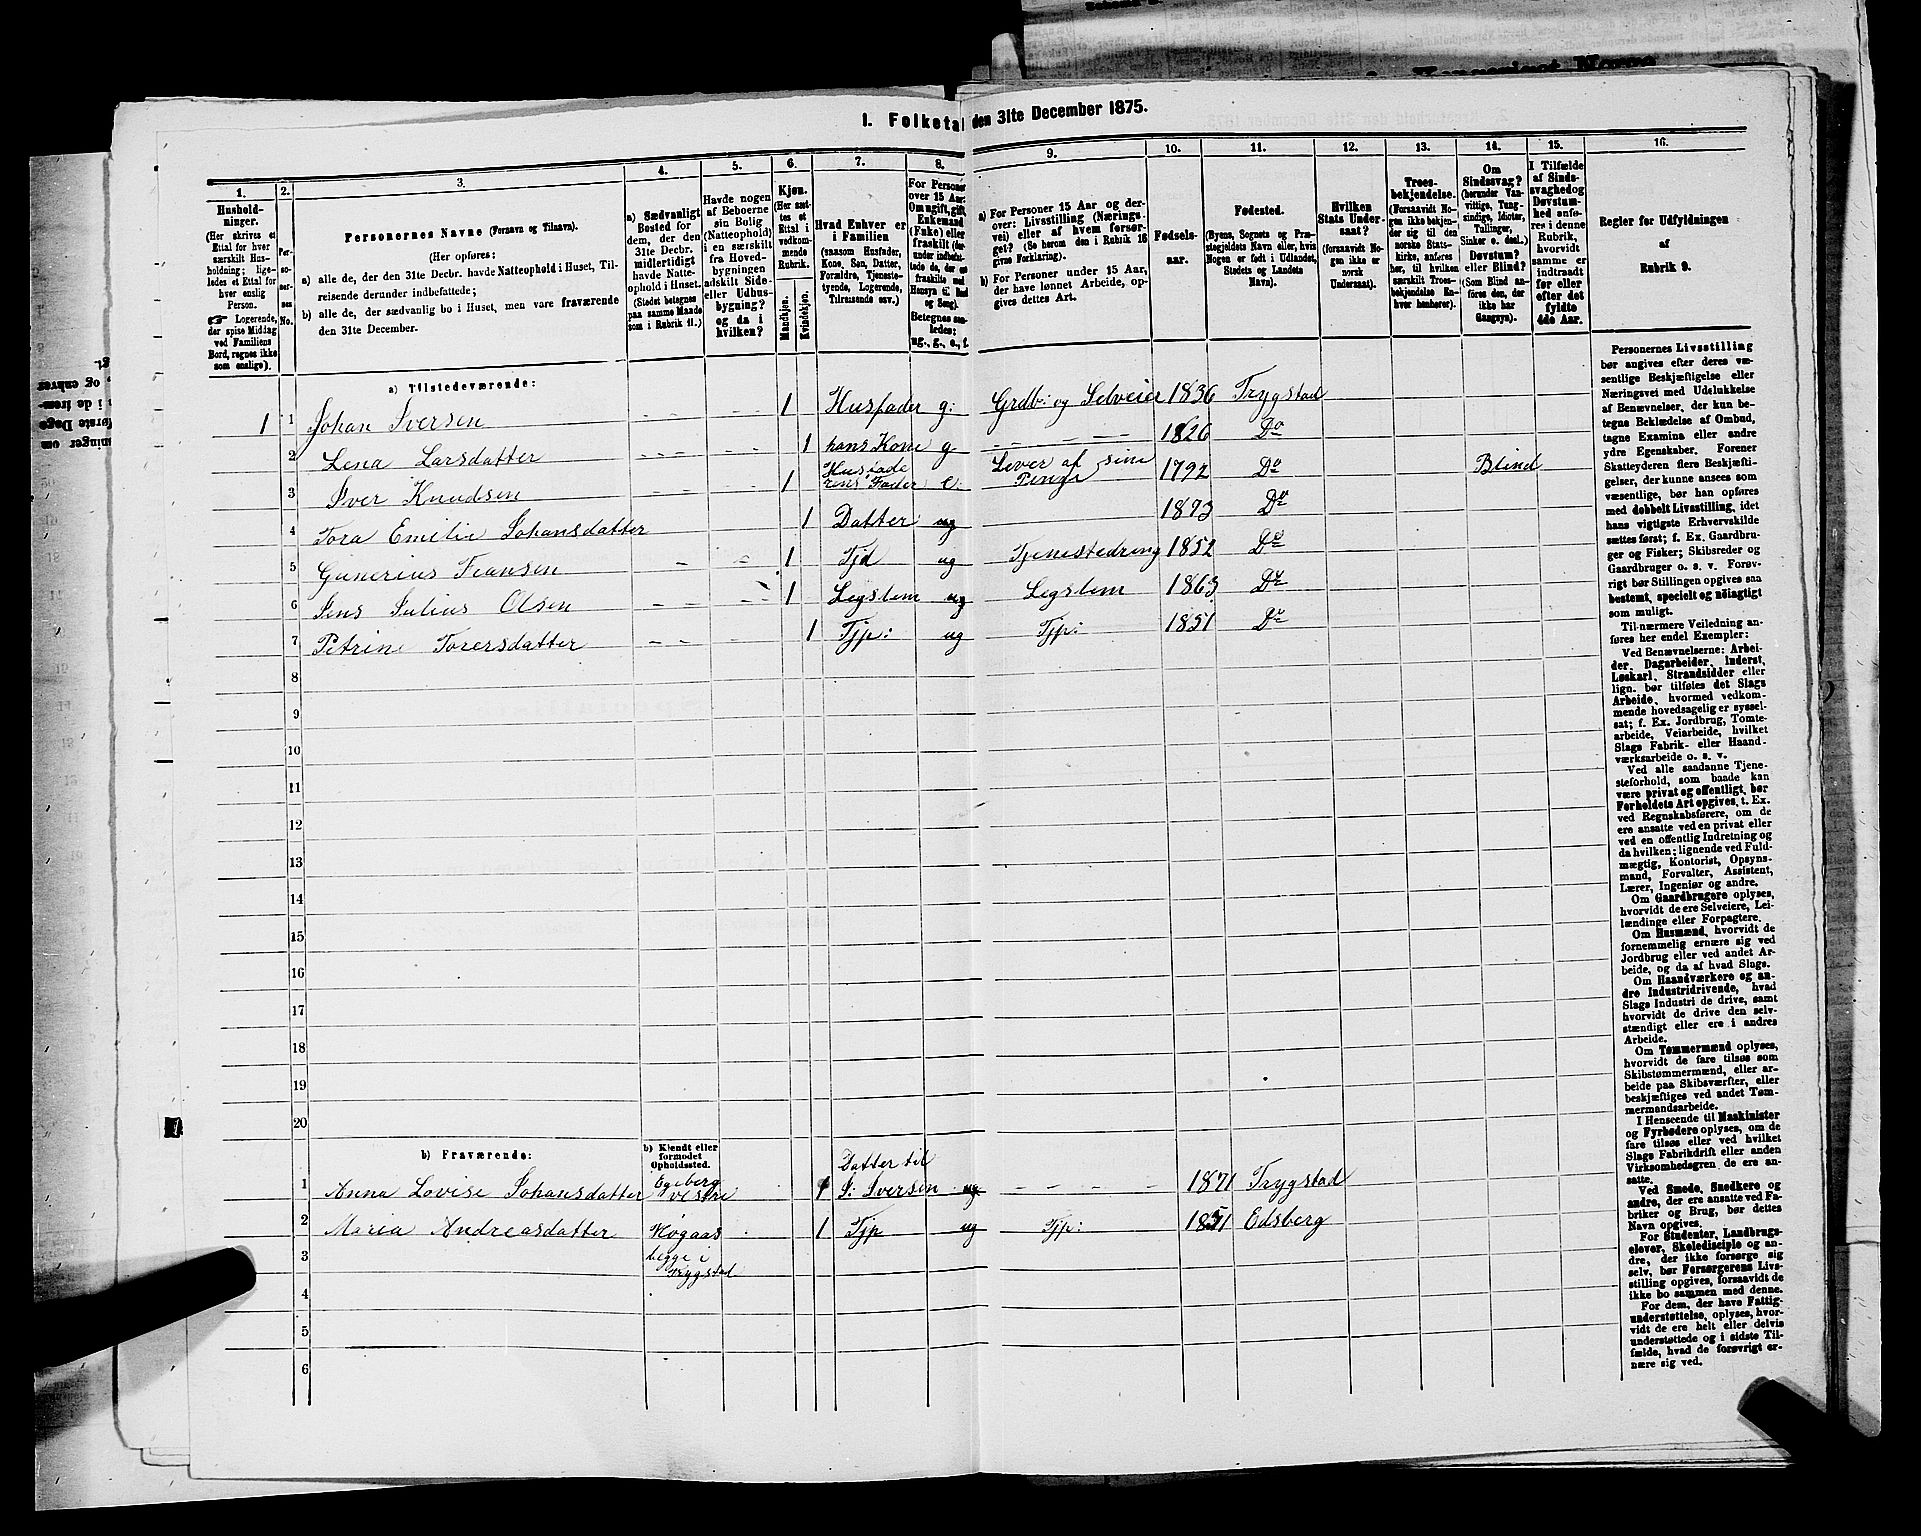 I. Folketal den 31te December 1875.
1. 2. 3. 4. 5. 6. 7. 8. 9. 10. 11. 12. 13. 14. 15. 16.
Hushold-
ninger.
(Her skrives et
Ettal for hver
særskilt Hus-
holdning; lige-
ledes et Ettal
for hver enslig
Person.
Logerende,
der spise Middag
ved Familiens
Bord, regnes ikke
som enslige).
Per-
so-
ner-
nes
No.
Personernes Navne (Fornavn og Tilnavn).
(Her opføres:
a) alle de, der den 31te Decbr. havde Natteophold i Huset, Til-
reisende derunder indbefattede;
b) alle de, der sædvanlig bo i Huset, men vare fraværende
den 31te December.
a) Sædvanligt
Bosted for
dem, der den
31te Decbr.
midlertidigt
havde Natte-
ophold i Huset.
(Stedet betegnes
paa samme Maade
som i Rubrik 11.)
Havde nogen
af Beboerne
sin Bolig
(Natteophold)
i en særskilt
fra Hoved-
bygningen
adskilt Side-
eller Udhus-
bygning?
og da i
hvilken?
Kjøn.
(Her sæt-
tes et
Ettal i
vedkom-
mende
Rubrik.
Mandkjøn.
Kvindekjøn.
Hvad Enhver er
i Familien
(saasom Husfader,
Kone, Søn, Datter,
Forældre, Tjeneste-
tyende, Logerende,
Tilreisende osv.)
For Personer
over 15 Aar:
Om ugift, gift,
Enkemand
(Enke) eller
fraskilt
Betegnes saa-
ledes:
ug., g., e., f.
a) For Personer 15 Aar og der-
over: Livsstilling (Nærings-
vei) eller af hvem forsør-
get? (Se herom den i Rubrik 16
givne Forklaring).
b) For Personer under 15 Aar,
der have lønnet Arbeide, op-
gives dettes Art.
Fødsels-
aar.
Fødested.
(Byens, Sognets og Præ-
stegjeldets Navn eller, hvis
Nogen er født i Udlandet,
Stedets og Landets
Navn).
Hvilken
Stats Under-
saat?
(forsaavidt No-
gen ikke er
norsk
Undersaat).
Troes-
bekjendelse.
(Forsaavidt No-
gen ikke bekjen-
der sig til den
norske Stats-
kirke, anføres
her, til hvilken
særskilt Troes-
bekjendelse En-
hver henhører).
Om
Sindssvag?
(herunder Van-
vittige, Tung-
sindige, Idioter,
Tullinger,
Sinker o. desl.)
Døvstum?
eller Blind?
(Som Blind an-
føres den, der
ikke har
Gangsyn).
I Tilfælde
af Sinds-
svaghed og
Døvstum-
hed anfø-
res i denne
Rubrik,
hvorvidt
samme er
indtraadt
før eller
efter det
fyldte
4de Aar.
Regler for Udfyldningen
af
Rubrik 9.
a) Tilstedeværende:
1 1 Johan Iversen 1 Husfader g: Grdb: og Selveier 1836 Trygstad
2 Lena Larsdatter 1 hans Kone g 1826 Do
3 Iver Knudsen 1 Husfade rens Fader e: Lever af sine Penge 1792 Do Blind
4 Tora Emilie Johansdatter 1 Datter ug 1873 Do
5 Gunerius Fransen 1 Tjd ug Tjenestedreng 1852 Do
6 Jens Julius Olsen 1 Legslem ug Legslem 1863 Do
7 Petrine Torersdatter 1 Tjp: ug Tjp: 1851 Do
8
9
10
11
12
13
14
15
16
17
18
19
20
b) Fraværende:
b) Kjendt eller
formodet
Opholdssted.
1 Anna Lovise Johansdatter Egeberg vestre 1 Datter til J: Iversen ug 1871 Trygstad
2 Maria Andreasdatter Høgaas 1 Tjp ug Tjp: 1851 Edsberg
3 begge i
Trygstad
4
5
6
Personernes Livsstilling
bør angives efter deres væ-
sentlige Beskjæftigelse eller
Næringsvei med Udelukkelse
af Benævnelser, der kun be-
tegne Beklædelse af Ombud,
tagne Examina eller andre
ydre Egenskaber. Forener
Skatteyderen flere Beskjæfti-
gelser, der kunne ansees som
væsentlige, bør han opføres
med dobbelt Livsstilling, idet
hans vigtigste Erhvervskilde
sættes først; f. Ex. Gaardbru-
ger og Fisker; Skibsreder og
Gaardbruger o. s. v. Forøv-
rigt bør Stillingen opgives saa
bestemt, specielt og nøiagtigt
som muligt.
Til nærmere Veiledning an-
føres her endel Exempler:
Ved Benævnelserne: Arbei-
der, Dagarbeider, Inderst,
Løskarl, Strandsidder eller
lign. bør tilføies det Slags
Arbeide, hvormed vedkom-
mende hovedsagelig er syssel-
sat; f. Ex. Jordbrug, Tomte-
arbeide, Veiarbeide, hvilket
Slags Fabrik- eller Haand-
værksarbeide o. s. v.
Ved alle saadanne Tjene-
steforhold, som baade kan
være privat og offentligt, bør
Forholdets Art opgives, t. Ex.
ved Regnskabsførere, om de
ere ansatte ved en privat eller
ved en offentlig Indretning og
da hvilken; lignende ved Fuld-
mægtig, Kontorist, Opsyns-
mand, Forvalter, Assistent,
Lærer, Ingeniør og andre.
Om Gaardbrugere oplyses,
hvorvidt de ere Selveiere, Lei-
lændinge eller Forpagtere.
Om Husmænd, hvorvidt de
fornemmelig ernære sig ved
Jordbrug eller ved andet Ar-
beide, og da af hvad Slags.
Om Haandværkere og an-
dre Industridrivende, hvad
Slags Industri de drive, samt
hvorvidt de drive den selv-
stændigt eller ere i andres
Arbeide.
Om Tømmermænd oplyses,
hvorvidt de fare tilsøs som
Skibstømmermænd, eller ar-
beide paa Skibsværfter, eller
beskjæftiges ved andet Tøm-
mermandsarbeide.
I Henseende til Maskinister
og Fyrbødere oplyses, om de
fare tilsøs eller ved hvilket
Slags Fabrikdrift eller anden
Virksomhedsgren de ere an-
satte.
Ved Smede, Snedkere og
andre, der ere ansatte ved Fa-
briker og Brug, bør dettes
Navn opgives.
For Studenter, Landbrugs-
elever, Skoledisciple og an-
dre, der ikke forsørge sig
selv, bør Forsørgerens Livs-
stilling opgives, forsaavidt de
ikke bo sammen med denne.
For dem, der have Fattig-
understøttelse, oplyses, hvor-
vidt de ere helt eller delvis
understøttede og i sidste Til-
fælde, hvad de forøvrigt er-
nære sig ved.